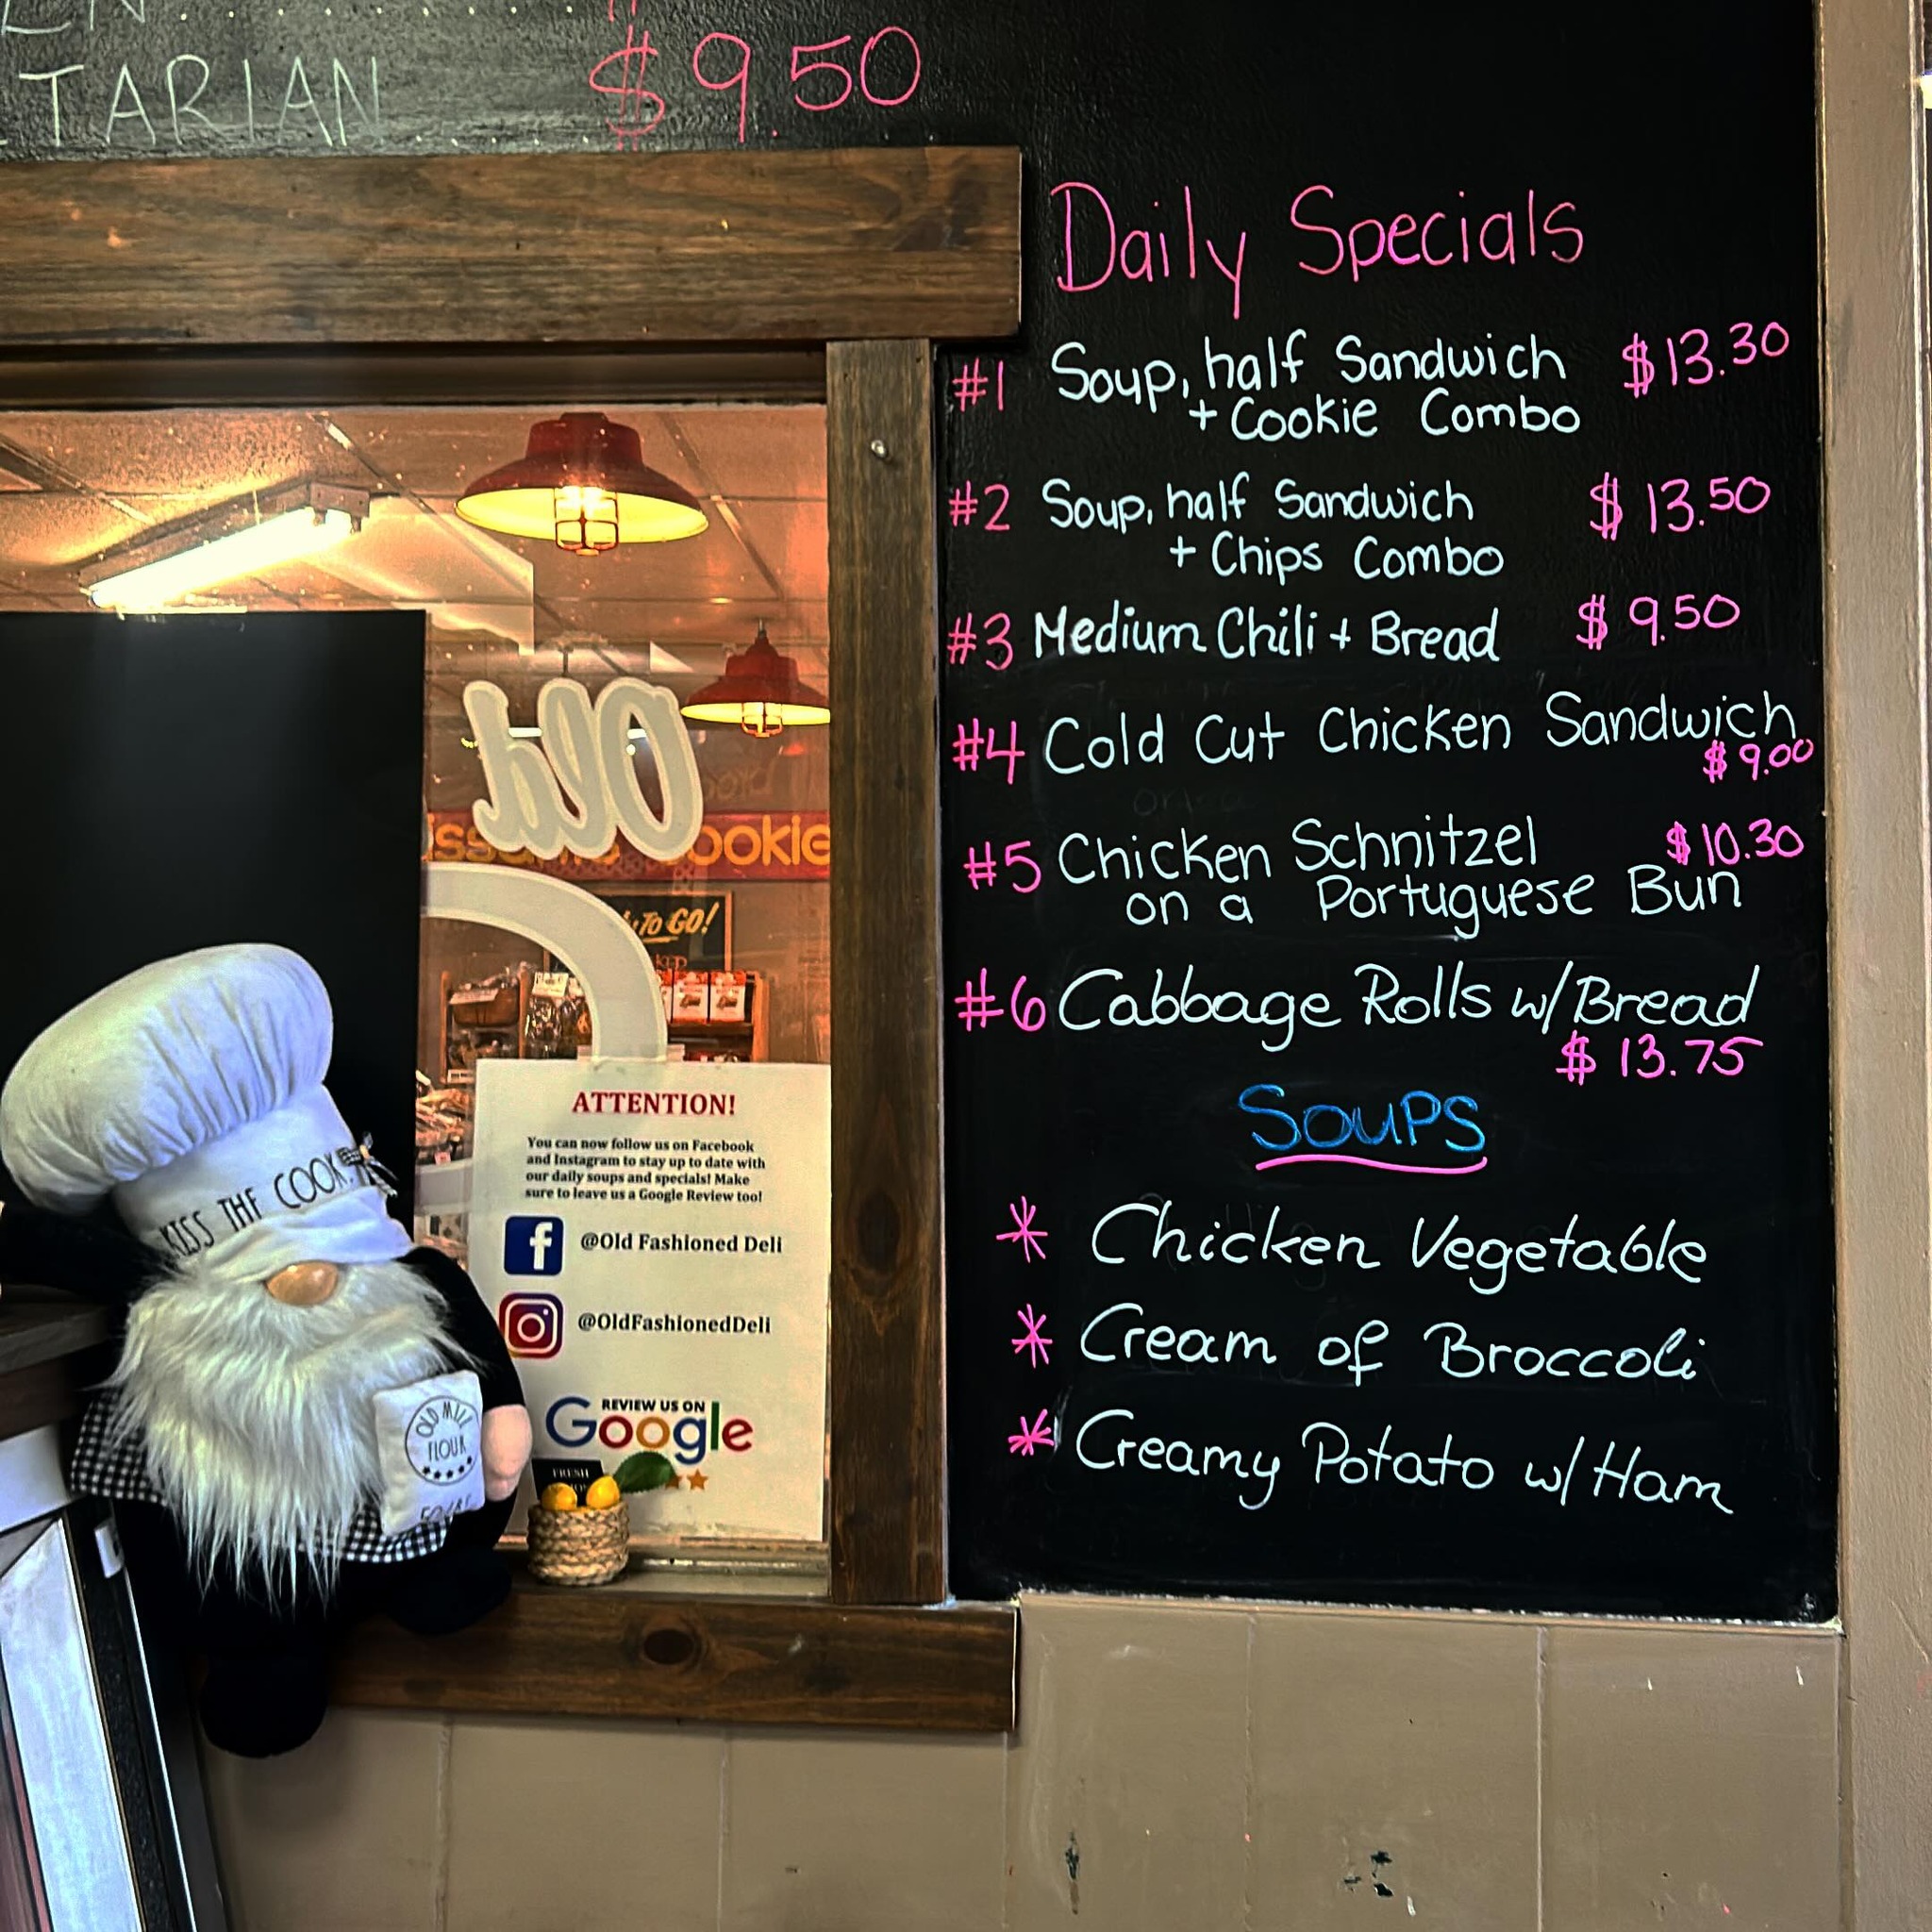 $9.50
Daily Specials
#1 Soup, half Sandwich $13.30
+ Cookie Combo
#2 Soup, half Sandwich $13.50
+ Chips Combo
#3 Medium Chili + Bread $9.50
#4 Cold Cut Chicken Sandwich
$9.00
#5 Chicken Schnitzel $10.30
on a Portuguese Bun
#6 Cabbage Rolls w/Bread
$13.75
SOUPS
* Chicken Vegetable
* Cream of Broccoli
* Creamy Potato w/ Ham
Old
TO GO!
ATTENTION!
You can now follow us on Facebook
and Instagram to stay up to date with
our daily soups and specials! Make
sure to leave us a Google Review too!
@Old Fashioned Deli
@OldFashionedDeli
REVIEW US ON
Google
FRESH
KISS THE COOK
OLD MILL
FLOUR